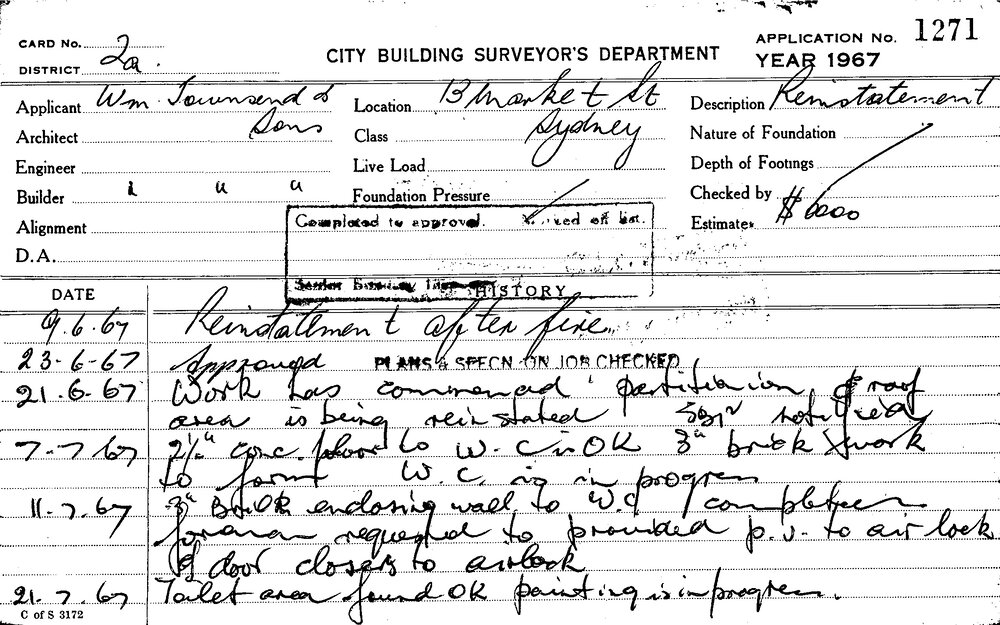 CARD No. 2a.
DISTRICT
CITY BUILDING SURVEYOR'S DEPARTMENT
APPLICATION No. 1271
YEAR 1967
Applicant Wm. Townsend &
Sons
Architect
Engineer
Builder " " "
Alignment
D.A.
Location 13 Market St
Sydney
Class
Live Load
Foundation Pressure
Description Reinstatement
Nature of Foundation
Depth of Footings
Checked by
Estimates $6000
Completed to approval. off list.
Senior Building
HISTORY
DATE
9.6.67 Reinstatement after fire
23-6-67 Approved PLANS & SPECN. ON JOB CHECKED
21.6.67 Work has commenced partition in roof
area is being reinstated notified
7-7-67 2½" conc. floor to W.C is OK 3" brick work
to form W.C. is in progress
11.7.67 3" Brick enclosing wall to W.C completed
foreman requested to provided p.v. to air lock
& door closers to airlock
21.7.67 Toilet area found OK painting is in progress.
C of S 3172